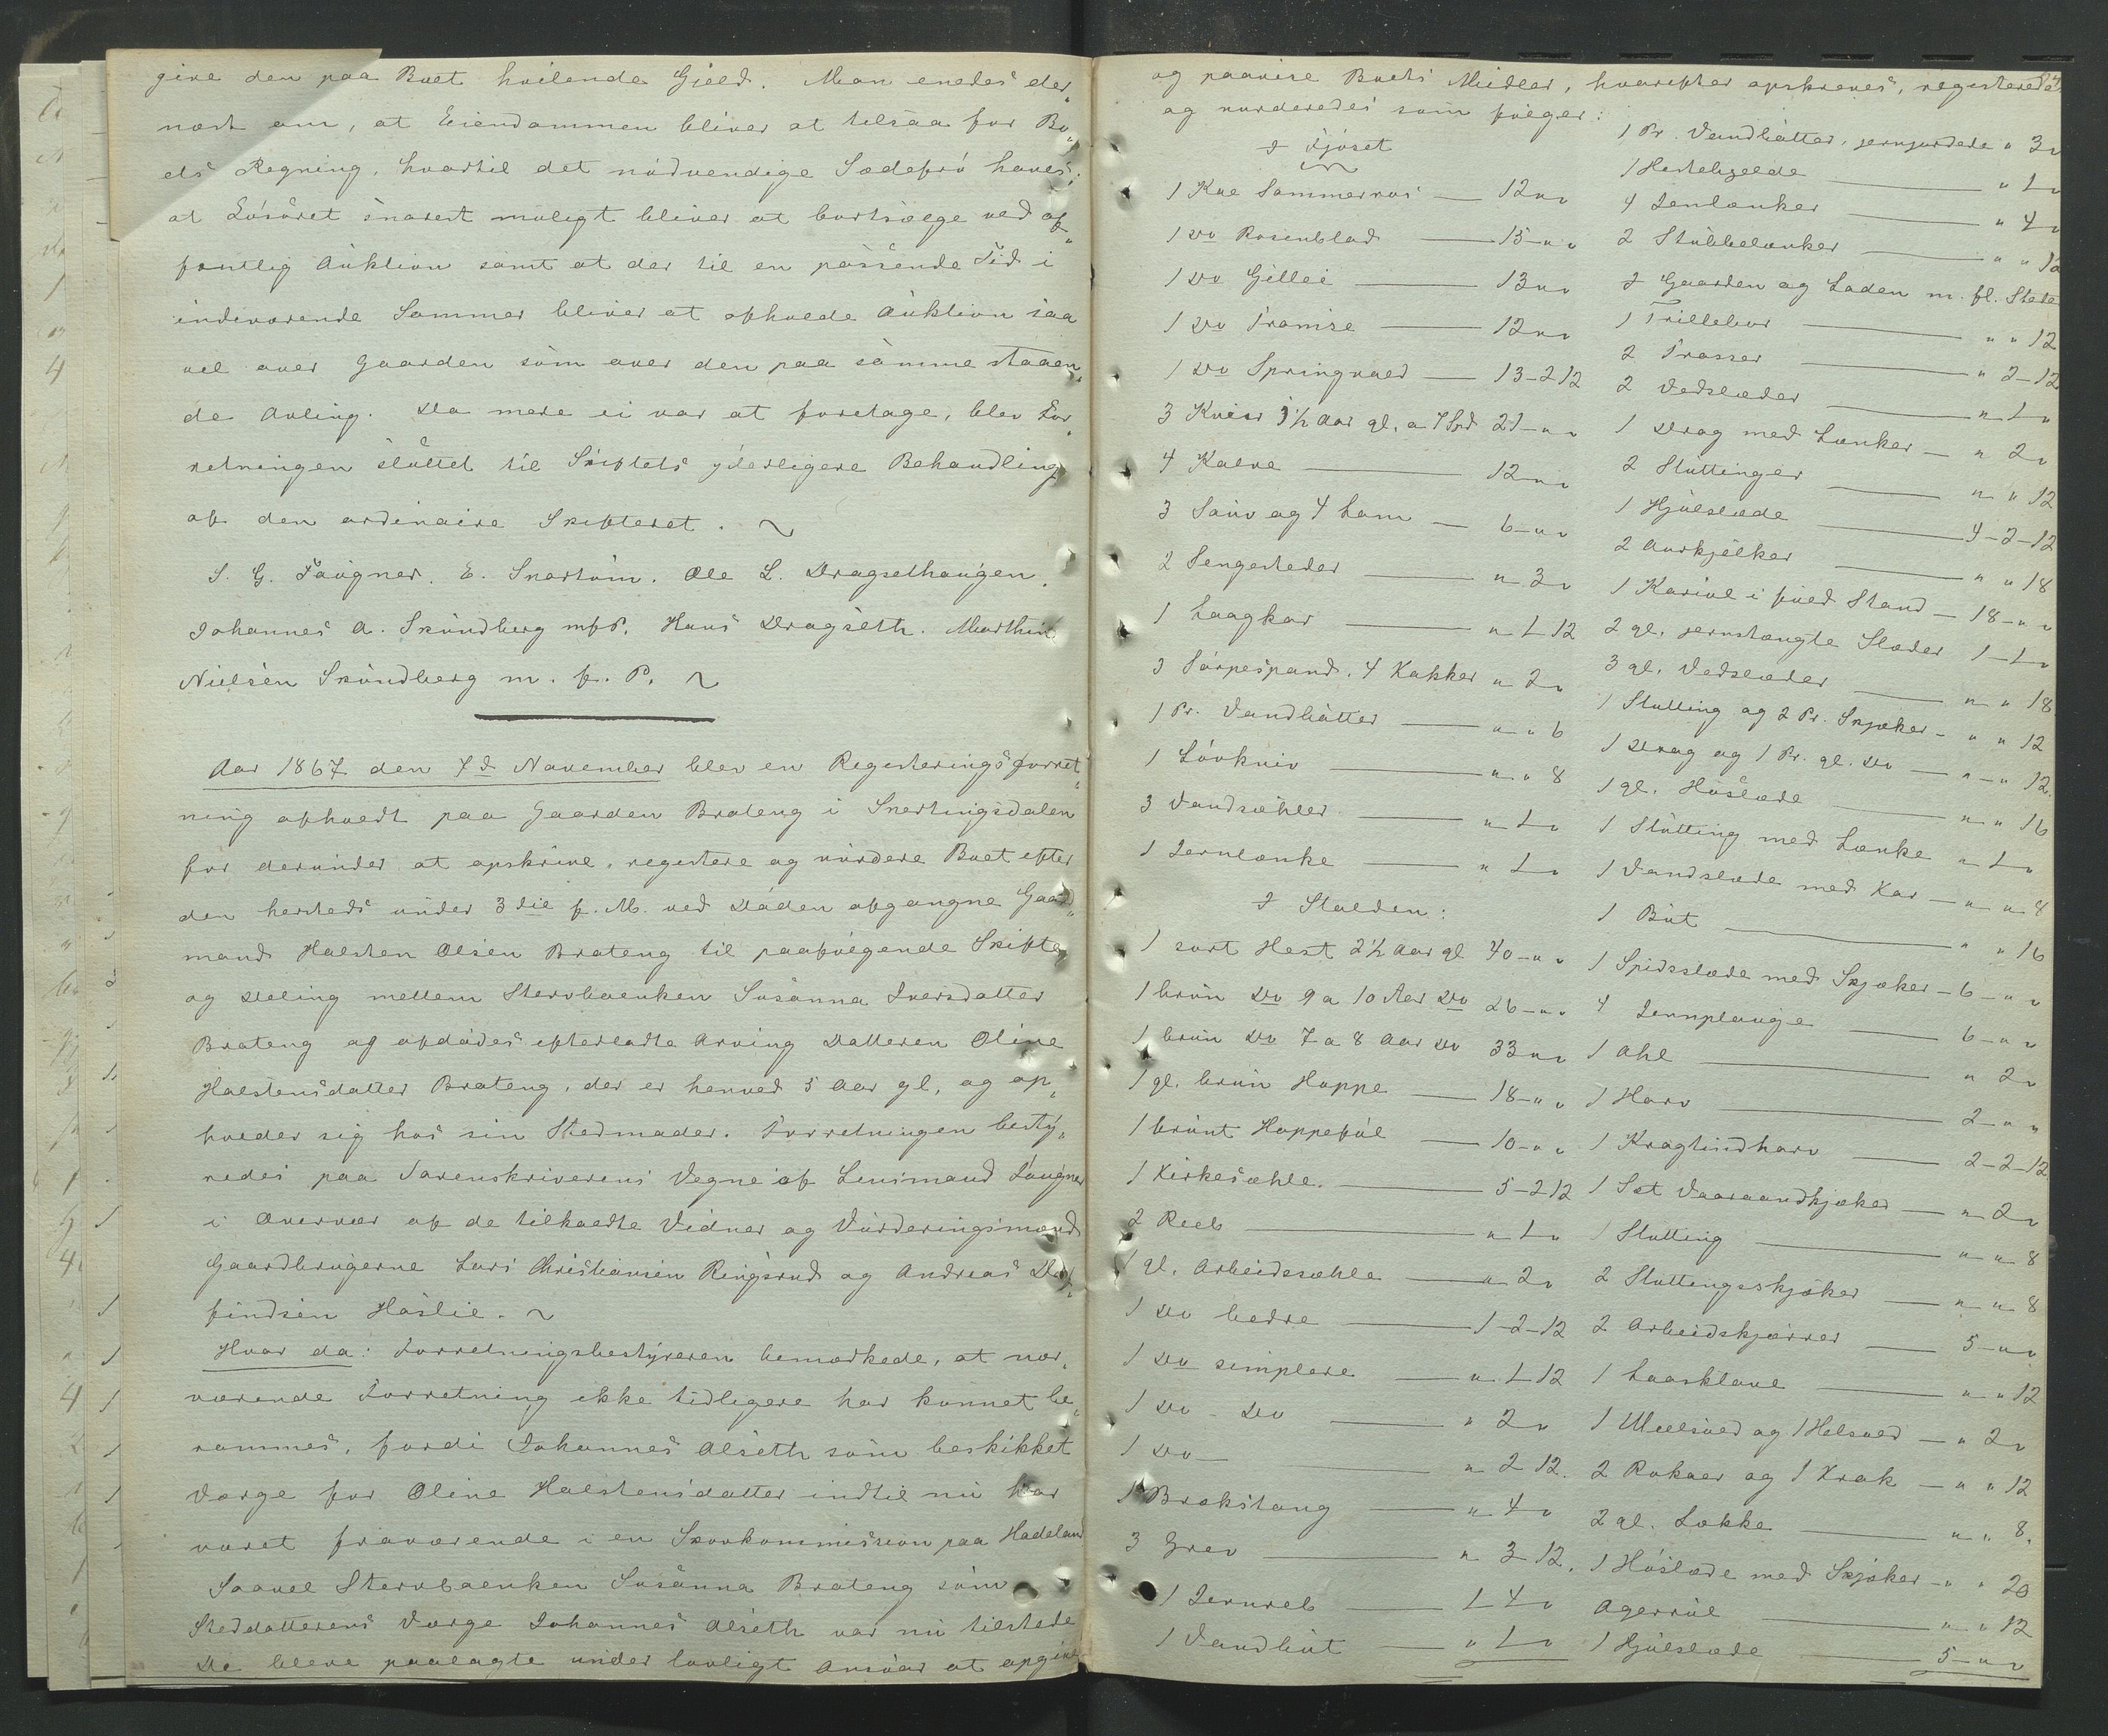 give den paa Boet hvilende Gjæld. Man enedes der„
næst om, at Eiendommen bliver at tilsaa for Bo„
ets Regning, hvortil det nødvendige Sædefrø haves;
at Løsøret snarest muligt bliver at bortsælge ved of„
fentlig Auktion samt at der til en passende Tid i
indeværende Sommer bliver at afholde Auktion saa
vel over Gaarden som over den paa samme staaen„
de Avling. Da mere ei var at foretage, blev For„
retningen sluttet til Skiftets yderligere Behandling
af den ordinaire Skifteret.
S. G. Taugner. E. Snartum. Ole L. Dragsethaugen.
Johannes A. Skundberg mfP. Hans Dragseth. Marthin
Nielsen Skundberg m. f. P.
Aar 1867 den 7d November blev en Registeringsforret„
ning afholdt paa Gaarden Brateng i Snertingsdalen
for derunder at opskrive, registere og vurdere Boet efter
den hersteds under 3die f. M. ved Døden afgangne Gaard„
mand Halsten Olsen Brateng til paafølgende Skifte
og Deling mellem Stervboenken Susanna Iversdatter
Brateng og afdødes efterladte Arving Datteren Oline
Halstensdatter Brateng, der er henved 5 Aar gl, og op„
holder sig hos sin Stedmoder. Forretningen besty„
redes paa Sorenskriverens Vegne af Lensmand Taugner
i Overvær af de tilkaldte Vidner og Vurderingsmænd
Gaardbrugerne Lars Christiansen Ringsrud og Andreas
findsen Haslie.
Hvor da: Forretningsbestyreren bemærkede, at nær„
værende Forretning ikke tidligere har kunnet be„
rammes, fordi Johannes Alseth som beskikket
Værge for Oline Halstensdatter indtil nu har
været fraværende i en Skovkommission paa Hadeland
Saavel Stervboenken Susanna Brateng som
Steddatterens Værge Johannes Alseth var nu tilstede
De bleve paalagte under lovligt Ansvar at opgive
og paavise Boets Midler, hvorefter opskreves, registeredes
og vurderedes som følger:
I Fjøset
1 Koe Sommerros — 12 „ „
1 Do Rosenblad — 15 - „ „
1 Do Gillei — 13 „ „
1 Do Framise — 12 „ „
1 Do Springvald — 13 - 2 12
3 Kvier 1½ Aar gl. a 7 Spd 21 - „ „
4 Kalve — 12 - „ „
3 Sauv og 4 Lam — 6 - „ „
2 Sengesteder — „ 3 „
1 Laagkar — „ 1 12
3 Sørpespand. 4 Kakker „ 2 „
1 Pr. Vandbøtter — „ „ 6
1 Løvkniv — „ „ 8
3 Vandsæhler — „ 1 „
1 Jernlænke — „ 1 „
I Stalden:
1 sort Hest 2½ Aar gl 40 - „ „
1 brun Do 9 a 10 Aar Do 26 - „ „
1 brun Do 7 a 8 Aar Do 33 „ „
1 gl. brun Hoppe — 18 - „ „
1 brunt Hoppeføl — 10 - „ „
1 Kirkesæhle. — 5 - 2 12
2 Reeb — „ 1 „
1 gl. Arbeidssæhle — „ 2 „
1 Do bedre — 1 - 2 - 12
1 Do simplere — „ 1 12
1 Do - Do — „ 2 „
1 Do — „ 2 12.
1 Brækstang — „ 4 „
3 Grev — „ 3 12.
1 Jernreb — 1 4 „
1 Vandbøt — „ 1 „
1 Pr. Vandbøtter, jerngjordede „ 3 „
1 Hestebjelde — „ 1 „
4 Jernlænker — „ 4 „
2 Stubbelænker — „ „ 12
I Gaarden og Laden m. fl. Stede
1 Trillebør — „ „ 12
2 Trosser — „ 2 - 12
2 Vedslæder — „ 1 „
1 Drog med Lænker — „ 2 „
2 Stuttinger — „ „ 12
1 Hjulslæde — 4 - 2 - 12
2 Aurkjelker — „ „ 18
1 Kariol i fuld Stand — 18 - „ „
2 gl. jernstængte Slæder 1 - 1 „
3 gl. Vedslæder — „ „ 18
1 Stutting og 2 Pr. Skjæker - „ „ 12
1 Drog og 1 Pr. gl. Do — „ - „ 12.
1 gl. Høslæde — „ „ 16
1 Stutting med Lænke „ 1 „
1 Vandslæde med Kar — „ „ 8
1 Bøt — „ „ 16
1 Spidsslæde med Skjæker - 6 - „ „
4 Jernplouge — 6 - „ „
1 Ahl — „ 2 „
1 Harv — 2 - „ „
1 Kragtindharv — 2 - 2 - 12
1 Sæt Vaaraandkjøker — „ 2 „
1 Stutting — „ „ 8
2 Stuttingsskjøker — „ „ 8
2 Arbeidskjærrer — 5 - „ „
1 Laasklave — „ „ 12
1 Meelsold og 1 Helsold — „ 2 „
2 Rokaer og 1 Krak — „ „ 12
2 gl. Løkke — „ „ 8.
1 Høslæde med Skjøker - „ „ 20
Agerrul — „ „ 12
1 Hjulslæde — 5 - „ „